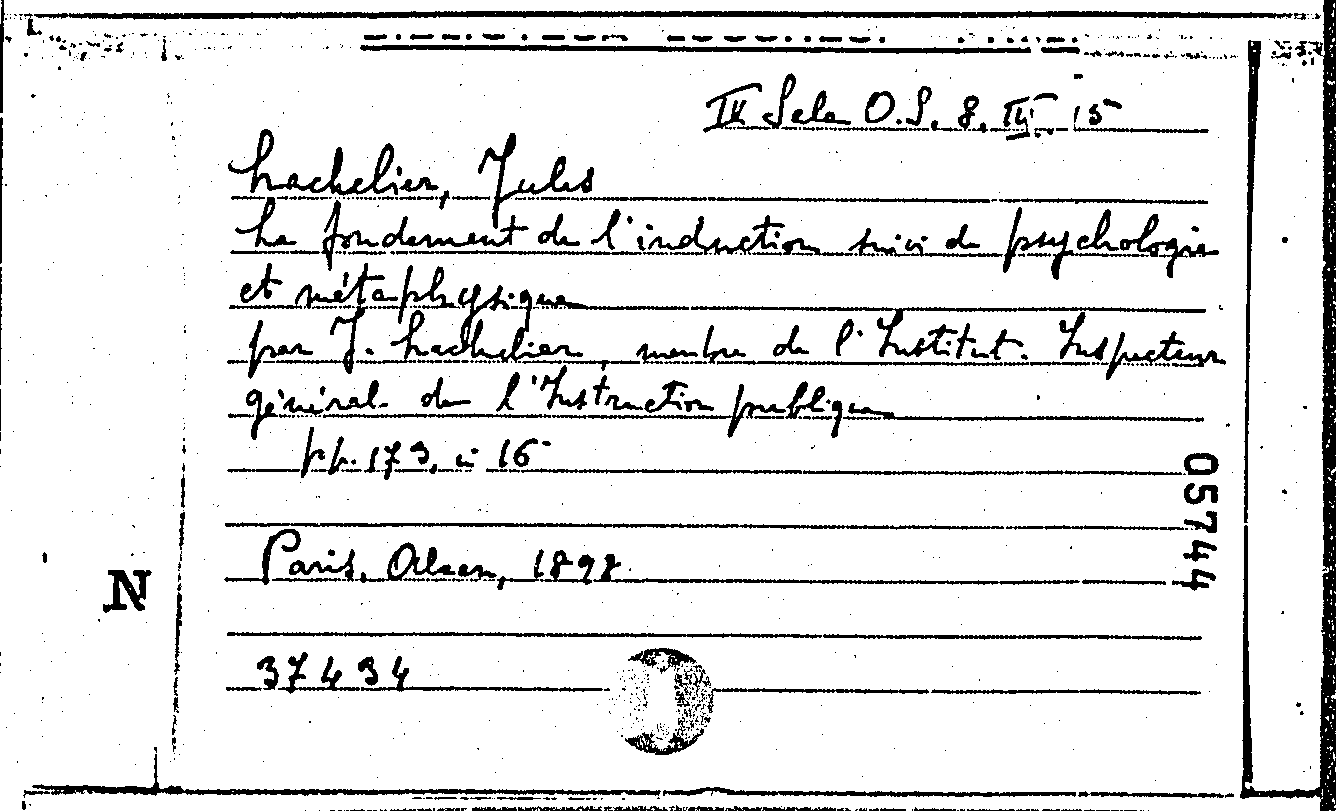 IV Sala O.S. 8. III 15
Lachelier, Jules
Le fondement de l'induction suivi de psychologie
et métaphysique
par J. Lachelier, membre de l'Institut. Inspecteur
général de l'Instruction publique
pp. 173, in 16
05744
Paris. Alcan, 1898
N
37434